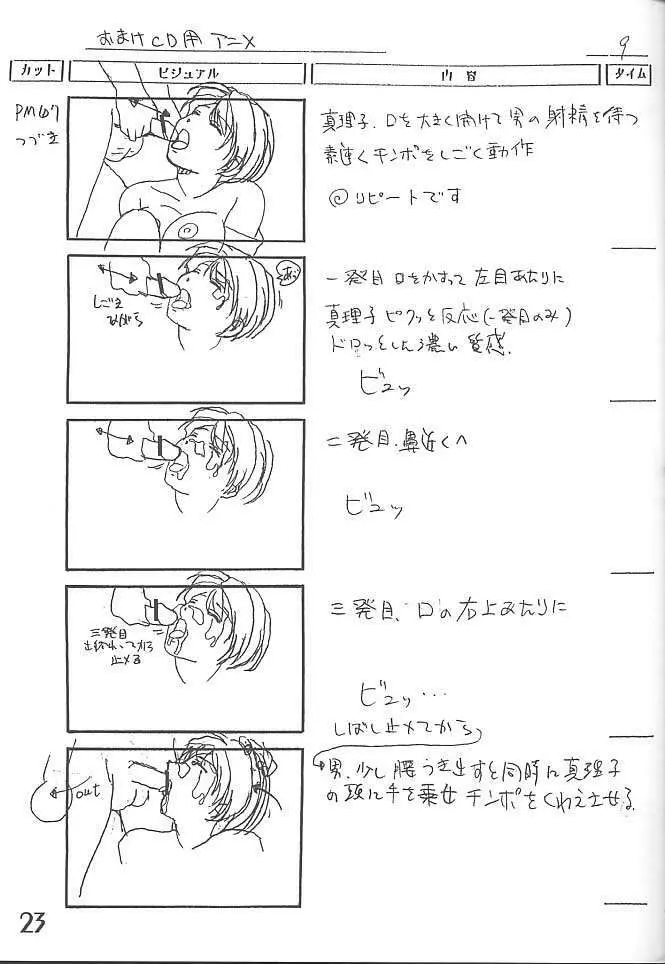 おまけCD用アニメ
9
カット
ビジュアル
内容
タイム
PM67
つづき
真理子、口を大きく開けて男の射精を待つ
素速くチンポをしごく動作
◎リピートです
あっ
しごき
ながら
一発目 口をかすって左目あたりに
真理子ピクッと反応(一発目のみ)
ドロッとした濃い質感.
ビュッ
二発目、鼻近くへ
ビュッ
三発目
出終わってから
止メる
三発目、口の右上あたりに
ビュッ・・・
しばし止メてから
out
男、少し腰うき出すと同時に真理子
の頭に手を乗せ チンポをくわえさせる.
23